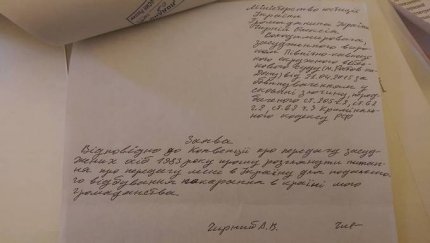 Міністерство юстиції
України
Громадянина України
Гирній Олексія
Володимировича,
засудженого виро-
ком Північно-Кавказь-
кого окружного військ-
ового суду (м. Ростов-на-
Дону) від 21.04.2015 за
обвинуваченням у
скоєнні злочину, перед-
баченого ст. 205.4 ч.2, ст. 62
Кримінально-
ного кодексу РФ
Заява
Відповідно до Конвенції про передачу засуд-
жених осіб 1983 року прошу розглянути питан-
ня про передачу мене в Україну для подальшо-
го відбування покарання в країні мого
громадянства.
Чирній А.В.